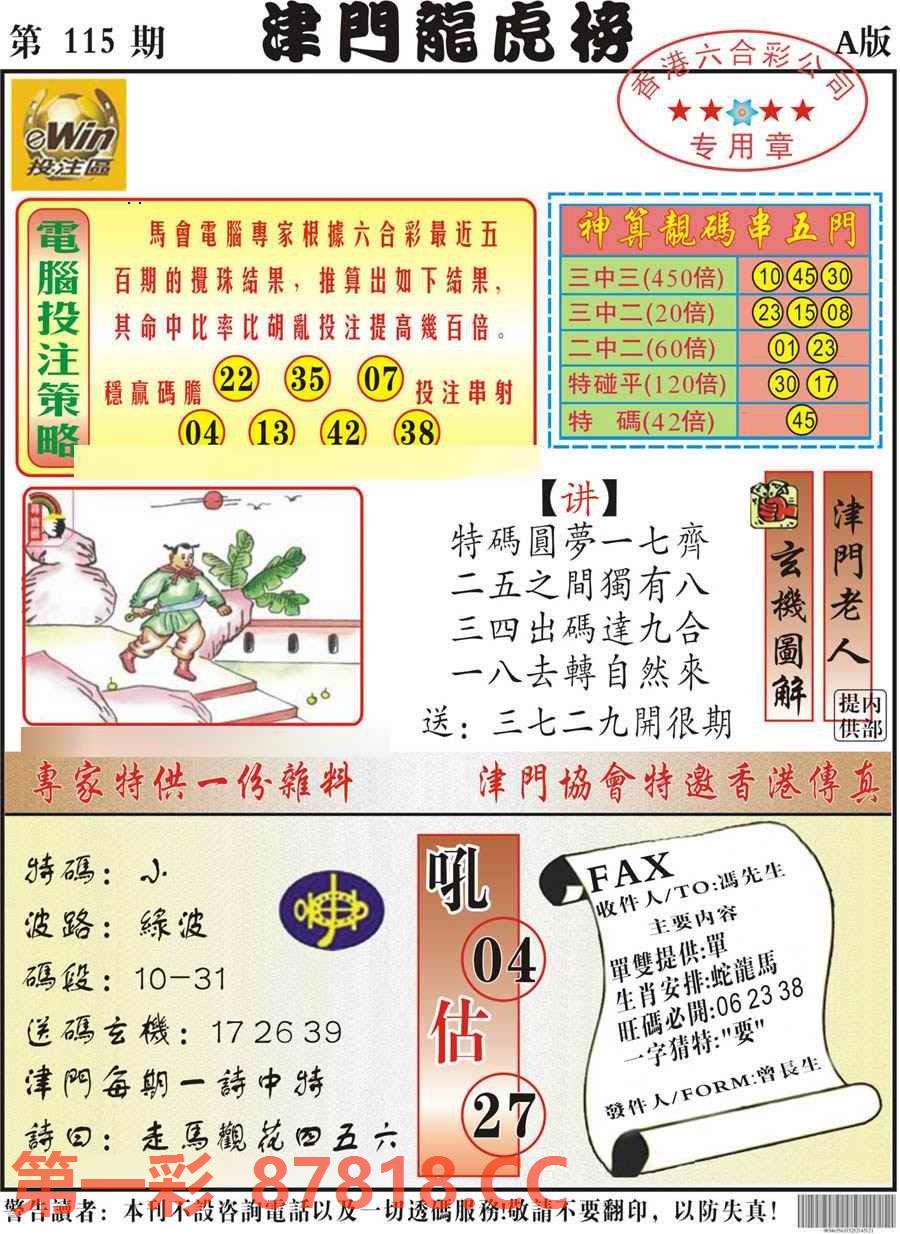 第 115 期
津門龍虎榜
A版
香港六合彩公司
专用章
eWin
投注區
電腦投注策略
馬會電腦專家根據六合彩最近五
百期的攪珠結果，推算出如下結果，
其命中比率比胡亂投注提高幾百倍。
穩贏碼膽 22 35 07 投注串射
04 13 42 38
神算靚碼串五門
三中三(450倍) 10 45 30
三中二(20倍) 23 15 08
二中二(60倍) 01 23
特碰平(120倍) 30 17
特 碼(42倍) 45
【讲】
特碼圓夢一七齊
二五之間獨有八
三四出碼達九合
一八去轉自然來
送：三七二九開很期
玄機圖解
津門老人
内部提供
專家特供一份雜料
津門協會特邀香港傳真
特碼：小
波路：綠波
碼段：10-31
送碼玄機：17 26 39
津門每期一詩中特
詩曰：走馬觀花四五六
吼
04
估
27
FAX
收件人/TO:馮先生
主要内容
單雙提供:單
生肖安排:蛇龍馬
旺碼必開:06 23 38
一字猜特:"要"
發件人/FORM:曾長生
第一彩 87818.CC
警告讀者：本刊不設咨詢電話以及一切透碼服務!敬請不要翻印，以防失真!